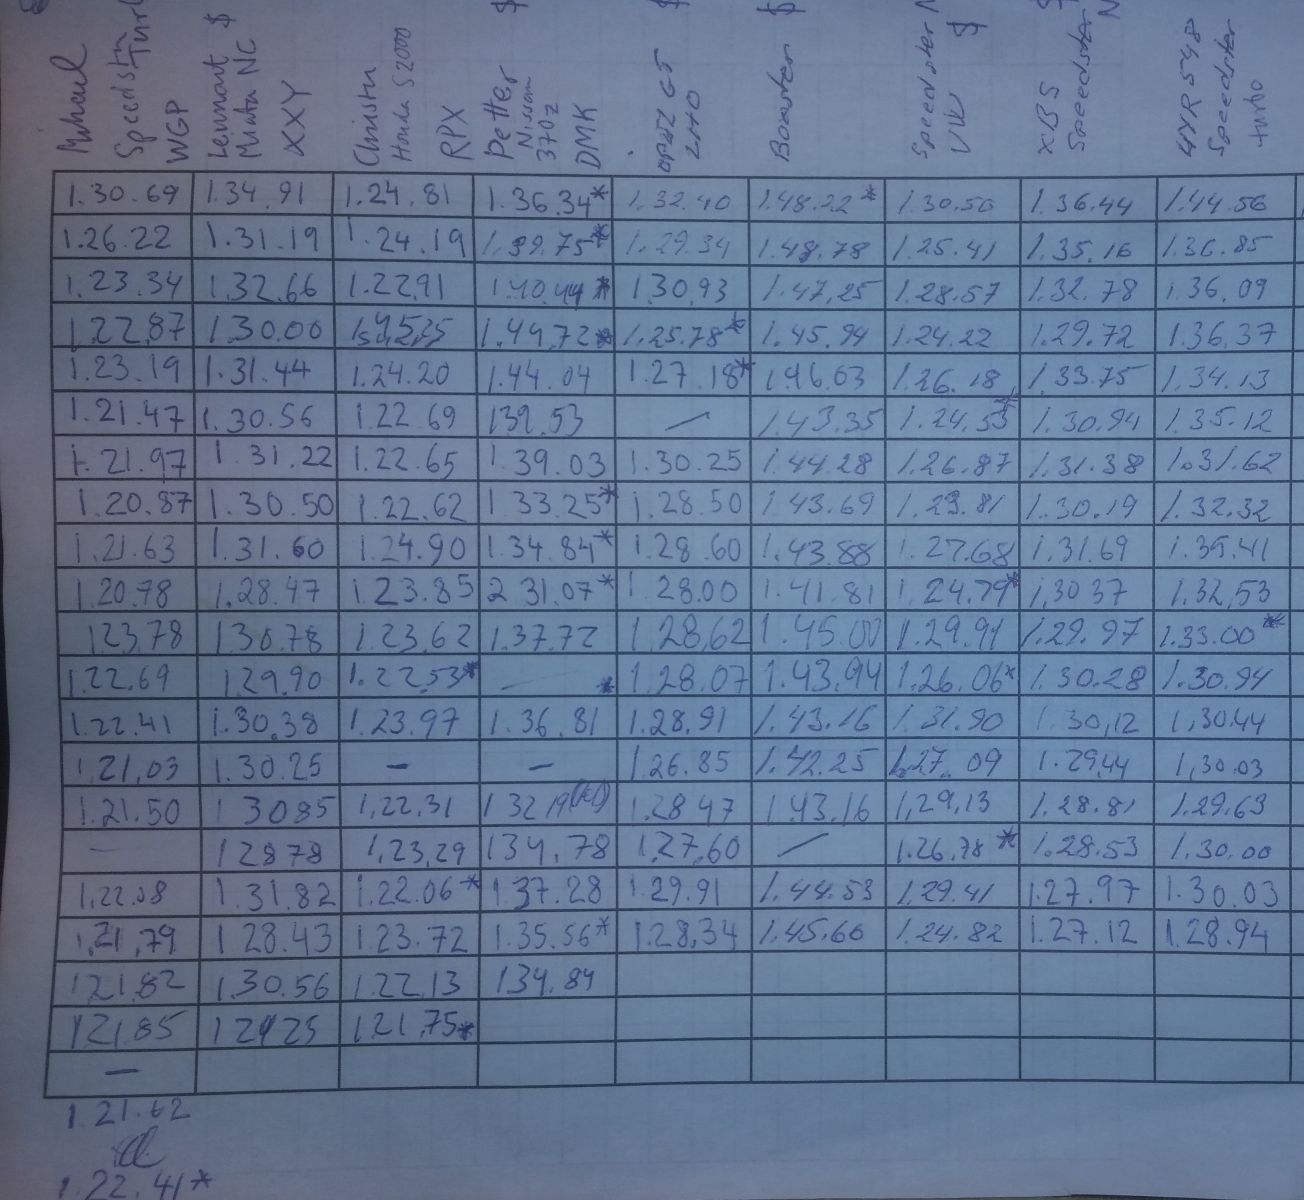 Speedster Turb WGP
Lennart Miata NC XXY $
Christer Honda S2000 RPX
Petter Nissan 370z DMK $
opel GT LHO $
Boxster $
Speedster N VIU $
XBS Speedster N $
4YR548 Speedster turbo
1.30.69 1.34.91 1.24.81 1.36.34* 1.32.40 1.48.22* 1.30.50 1.36.44 1.44.56
1.26.22 1.31.19 1.24.19 1.39.75* 1.29.34 1.48.78 1.25.41 1.35.16 1.36.85
1.23.34 1.32.66 1.22.91 1.40.44* 1.30.93 1.47.25 1.28.57 1.32.78 1.36.09
1.22.87 1.30.00 1.44.72* 1.25.78* 1.45.94 1.24.22 1.29.72 1.36.37
1.23.19 1.31.44 1.24.20 1.44.04 1.27.18* 1.46.63 1.26.18 1.33.75 1.34.13
1.21.47 1.30.56 1.22.69 139.53 — 1.43.35 1.24.53* 1.30.94 1.35.12
1.21.97 1.31.22 1.22.65 1.39.03 1.30.25 1.44.28 1.26.87 1.31.38 1.31.62
1.20.87 1.30.50 1.22.62 1.33.25* 1.28.50 1.43.69 1.23.81 1.30.19 1.32.32
1.21.63 1.31.60 1.24.90 1.34.84* 1.28.60 1.43.88 1.27.68 1.31.69 1.35.41
1.20.78 1.28.47 1.23.85 2.31.07* 1.28.00 1.41.81 1.24.79* 1.30 37 1.32.53
123.78 1.30.78 1.23.62 1.37.72 1.28,62 1.45.00 1.29.91 1.29.97 1.33.00*
1.22.69 1.29.90 1.22.53* — * 1.28.07 1.43.94 1.26.06* 1.30.28 1.30.94
1.22.41 1.30.38 1.23.97 1.36.81 1.28,91 1.43.16 1.31.90 1.30,12 1,30.44
1.21,03 1.30.25 — — 1.26.85 1.42.25 1.27.09 1.29.44 1,30.03
1.21.50 1 3085 1,22.31 1 32 19 1.28 47 1.43.16 1,29,13 1.28.81 1.29.63
— 12878 1,23,29 134.78 1.27.60 — 1.26.78* 1.28.53 1.30.00
1,22.08 1.31.82 1.22.06* 1.37.28 1.29.91 1.44.53 1,29.41 1.27.97 1.30.03
1.21,79 1 28.43 1.23.72 1.35.56* 1.28,34 1.45.66 1.24.82 1.27.12 1.28.94
121.82 1.30.56 1.22.13 134.84
1.21.85 1.21.75*
—
1.21.62
1.22.41*